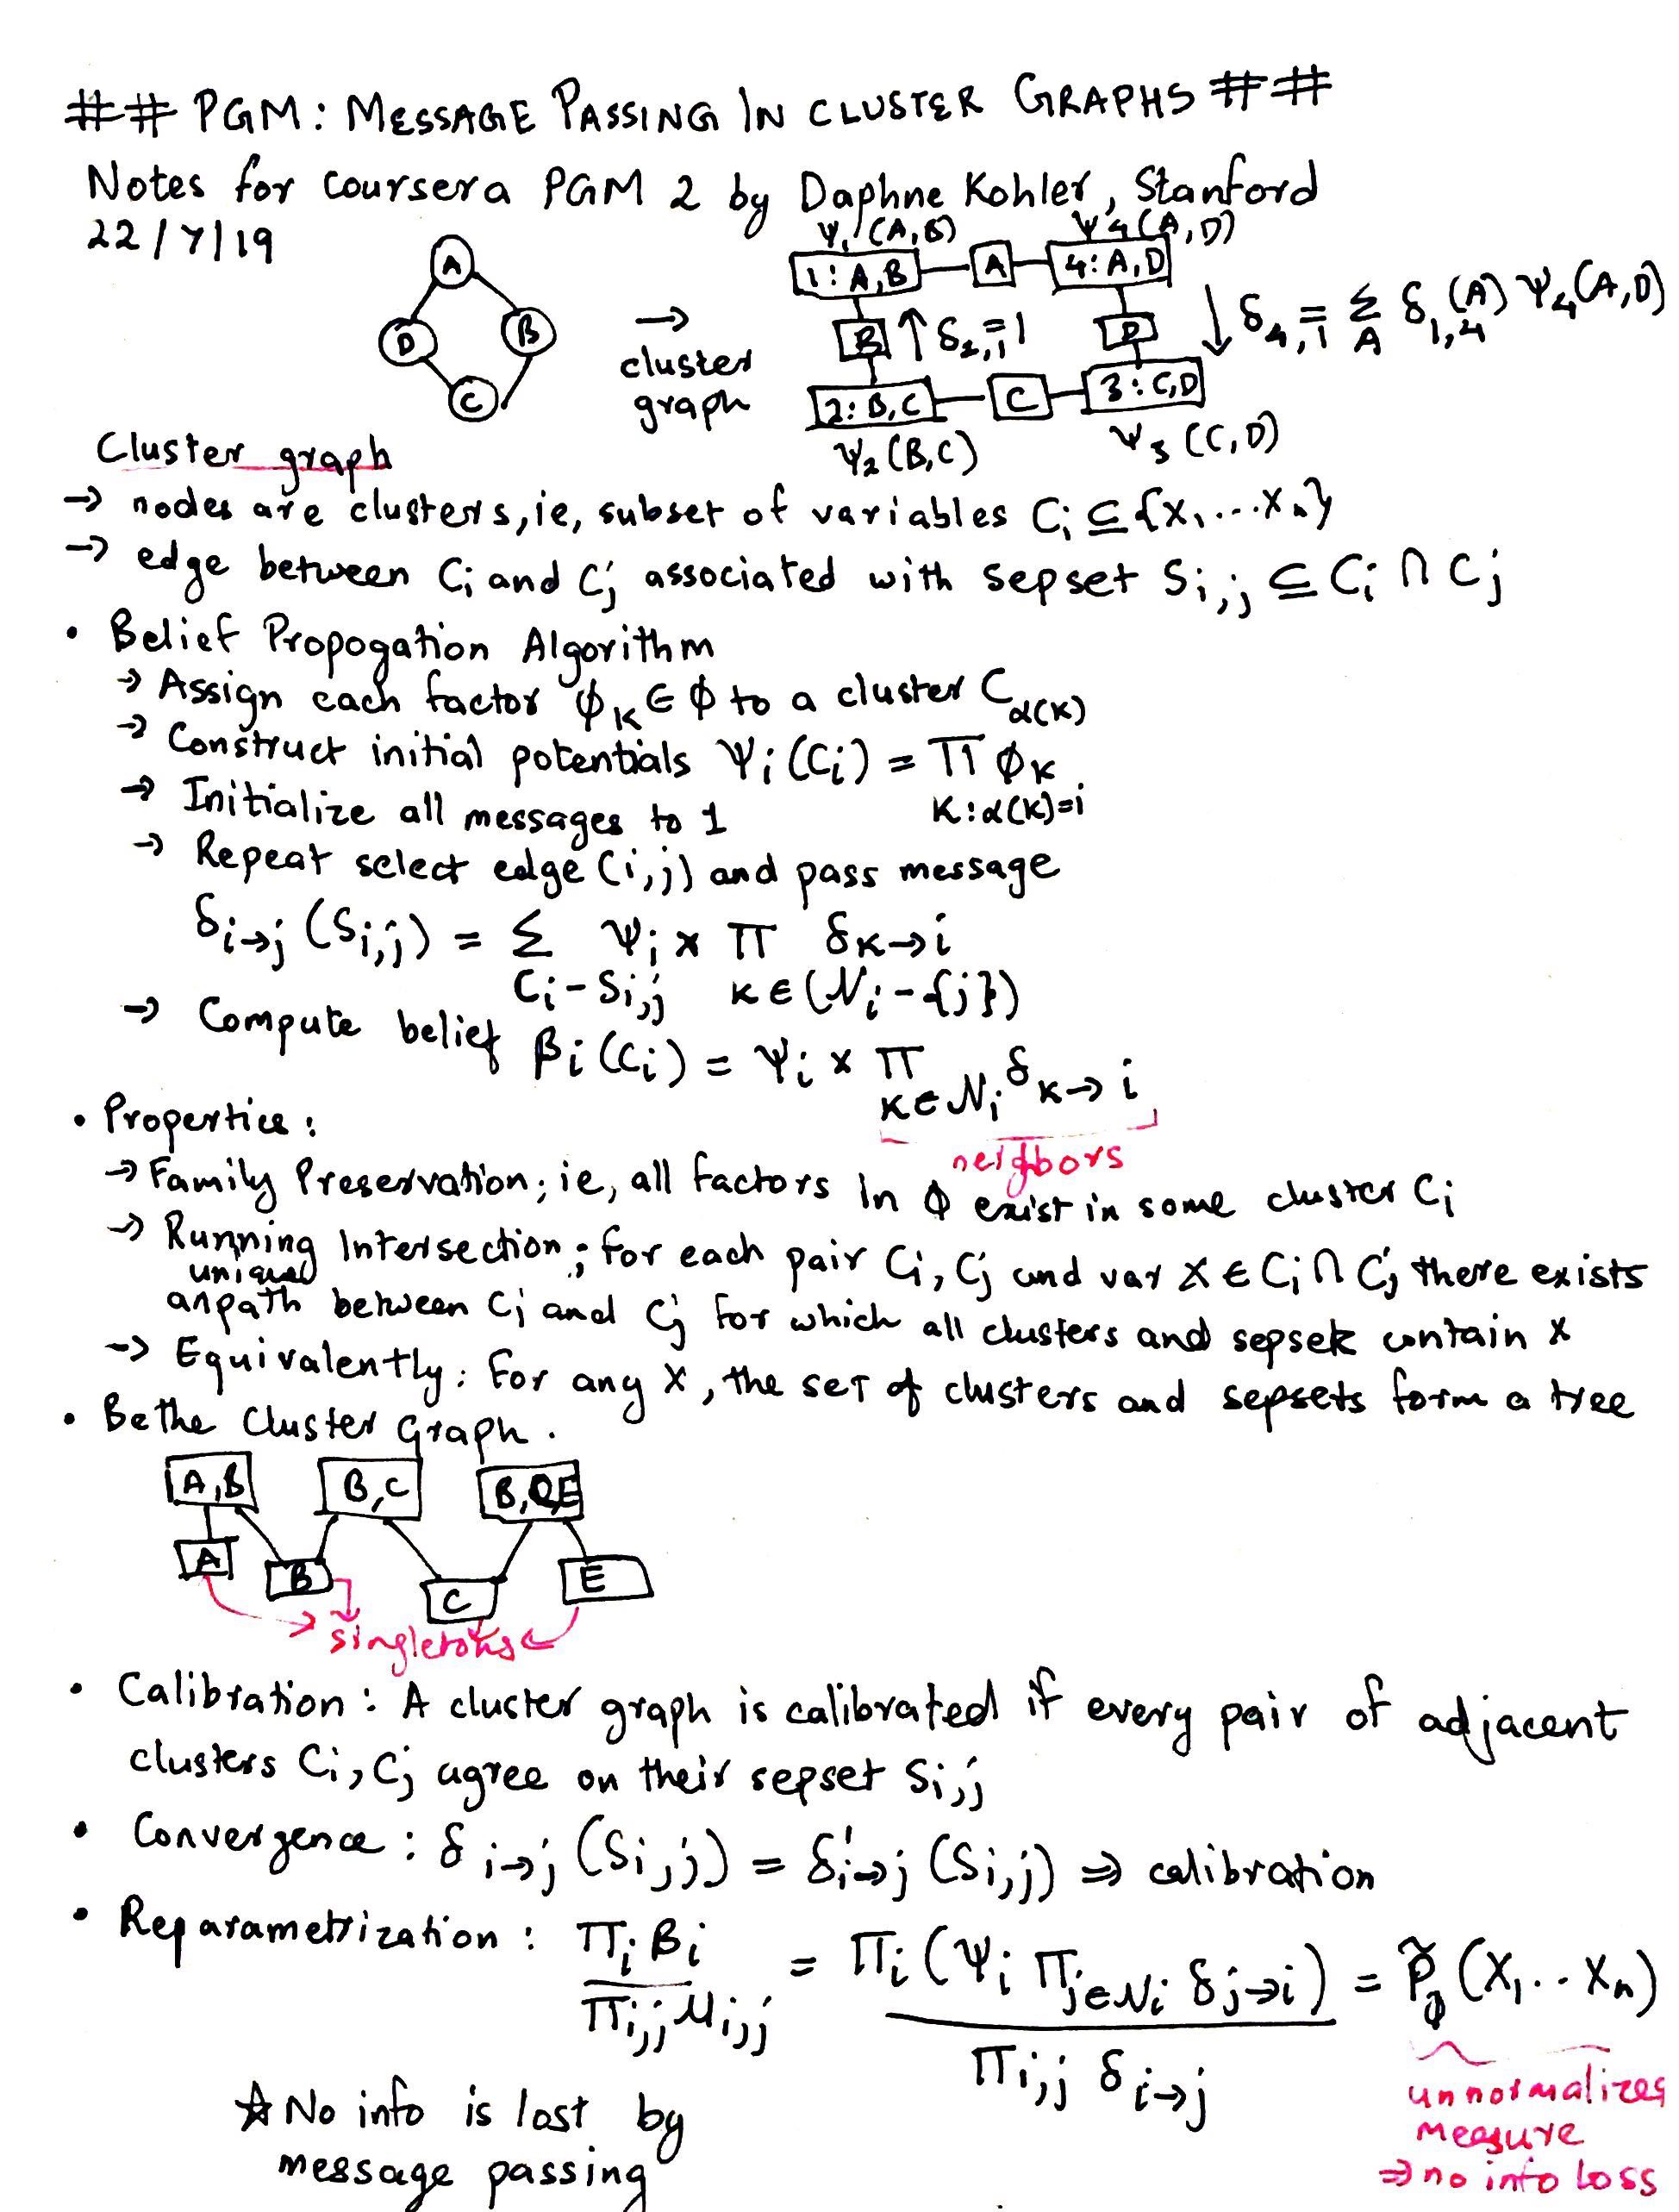 ## PGM: MESSAGE PASSING IN CLUSTER GRAPHS ##
Notes for coursera PGM 2 by Daphne Kohler, Stanford
22/7/19
A
D
B
C
→
cluster
graph
Ψ₁(A,B)
Ψ₄(A,D)
1: A,B
A
4: A,D
B
↑ δ₂,₁=1
D
↓ δ₄,₁ = Σ_A δ₁,₄(A) Ψ₄(A,D)
2: B,C
C
3: C,D
Ψ₂(B,C)
Ψ₃(C,D)
Cluster graph
→ nodes are clusters, ie, subset of variables Cᵢ ⊆ {X₁...Xₙ}
→ edge between Cᵢ and Cⱼ associated with sepset Sᵢ,ⱼ ⊆ Cᵢ ∩ Cⱼ
• Belief Propogation Algorithm
→ Assign each factor ϕ_K ∈ ϕ to a cluster C_α(K)
→ Construct initial potentials Ψᵢ(Cᵢ) = Π ϕ_K
K:α(K)=i
→ Initialize all messages to 1
→ Repeat select edge (i,j) and pass message
δᵢ→ⱼ (Sᵢ,ⱼ) = Σ Ψᵢ x Π δ_K→i
Cᵢ-Sᵢ,ⱼ K∈(𝒩ᵢ-{j})
→ Compute belief βᵢ(Cᵢ) = Ψᵢ x Π δ_K→i
K∈𝒩ᵢ
neighbors
• Properties:
→ Family Preservation; ie, all factors in ϕ exist in some cluster Cᵢ
→ Running Intersection; for each pair Cᵢ, Cⱼ and var X ∈ Cᵢ ∩ Cⱼ there exists
unique
an path between Cᵢ and Cⱼ for which all clusters and sepsets contain X
→ Equivalently: For any X, the set of clusters and sepsets form a tree
• Bethe Cluster Graph.
A,B
B,C
B,D,E
A
B
C
E
singletons
• Calibration: A cluster graph is calibrated if every pair of adjacent
clusters Cᵢ, Cⱼ agree on their sepset Sᵢ,ⱼ
• Convergence: δᵢ→ⱼ (Sᵢ,ⱼ) = δ'ᵢ→ⱼ (Sᵢ,ⱼ) ⇒ calibration
• Reparametrization: Πᵢ βᵢ / Πᵢ,ⱼ μᵢ,ⱼ = Πᵢ (Ψᵢ Π_j∈𝒩ᵢ δⱼ→ᵢ) / Πᵢ,ⱼ δᵢ→ⱼ = P̃_ϕ (X₁..Xₙ)
unnormalizes
measure
⇒ no info loss
☆ No info is lost by
message passing